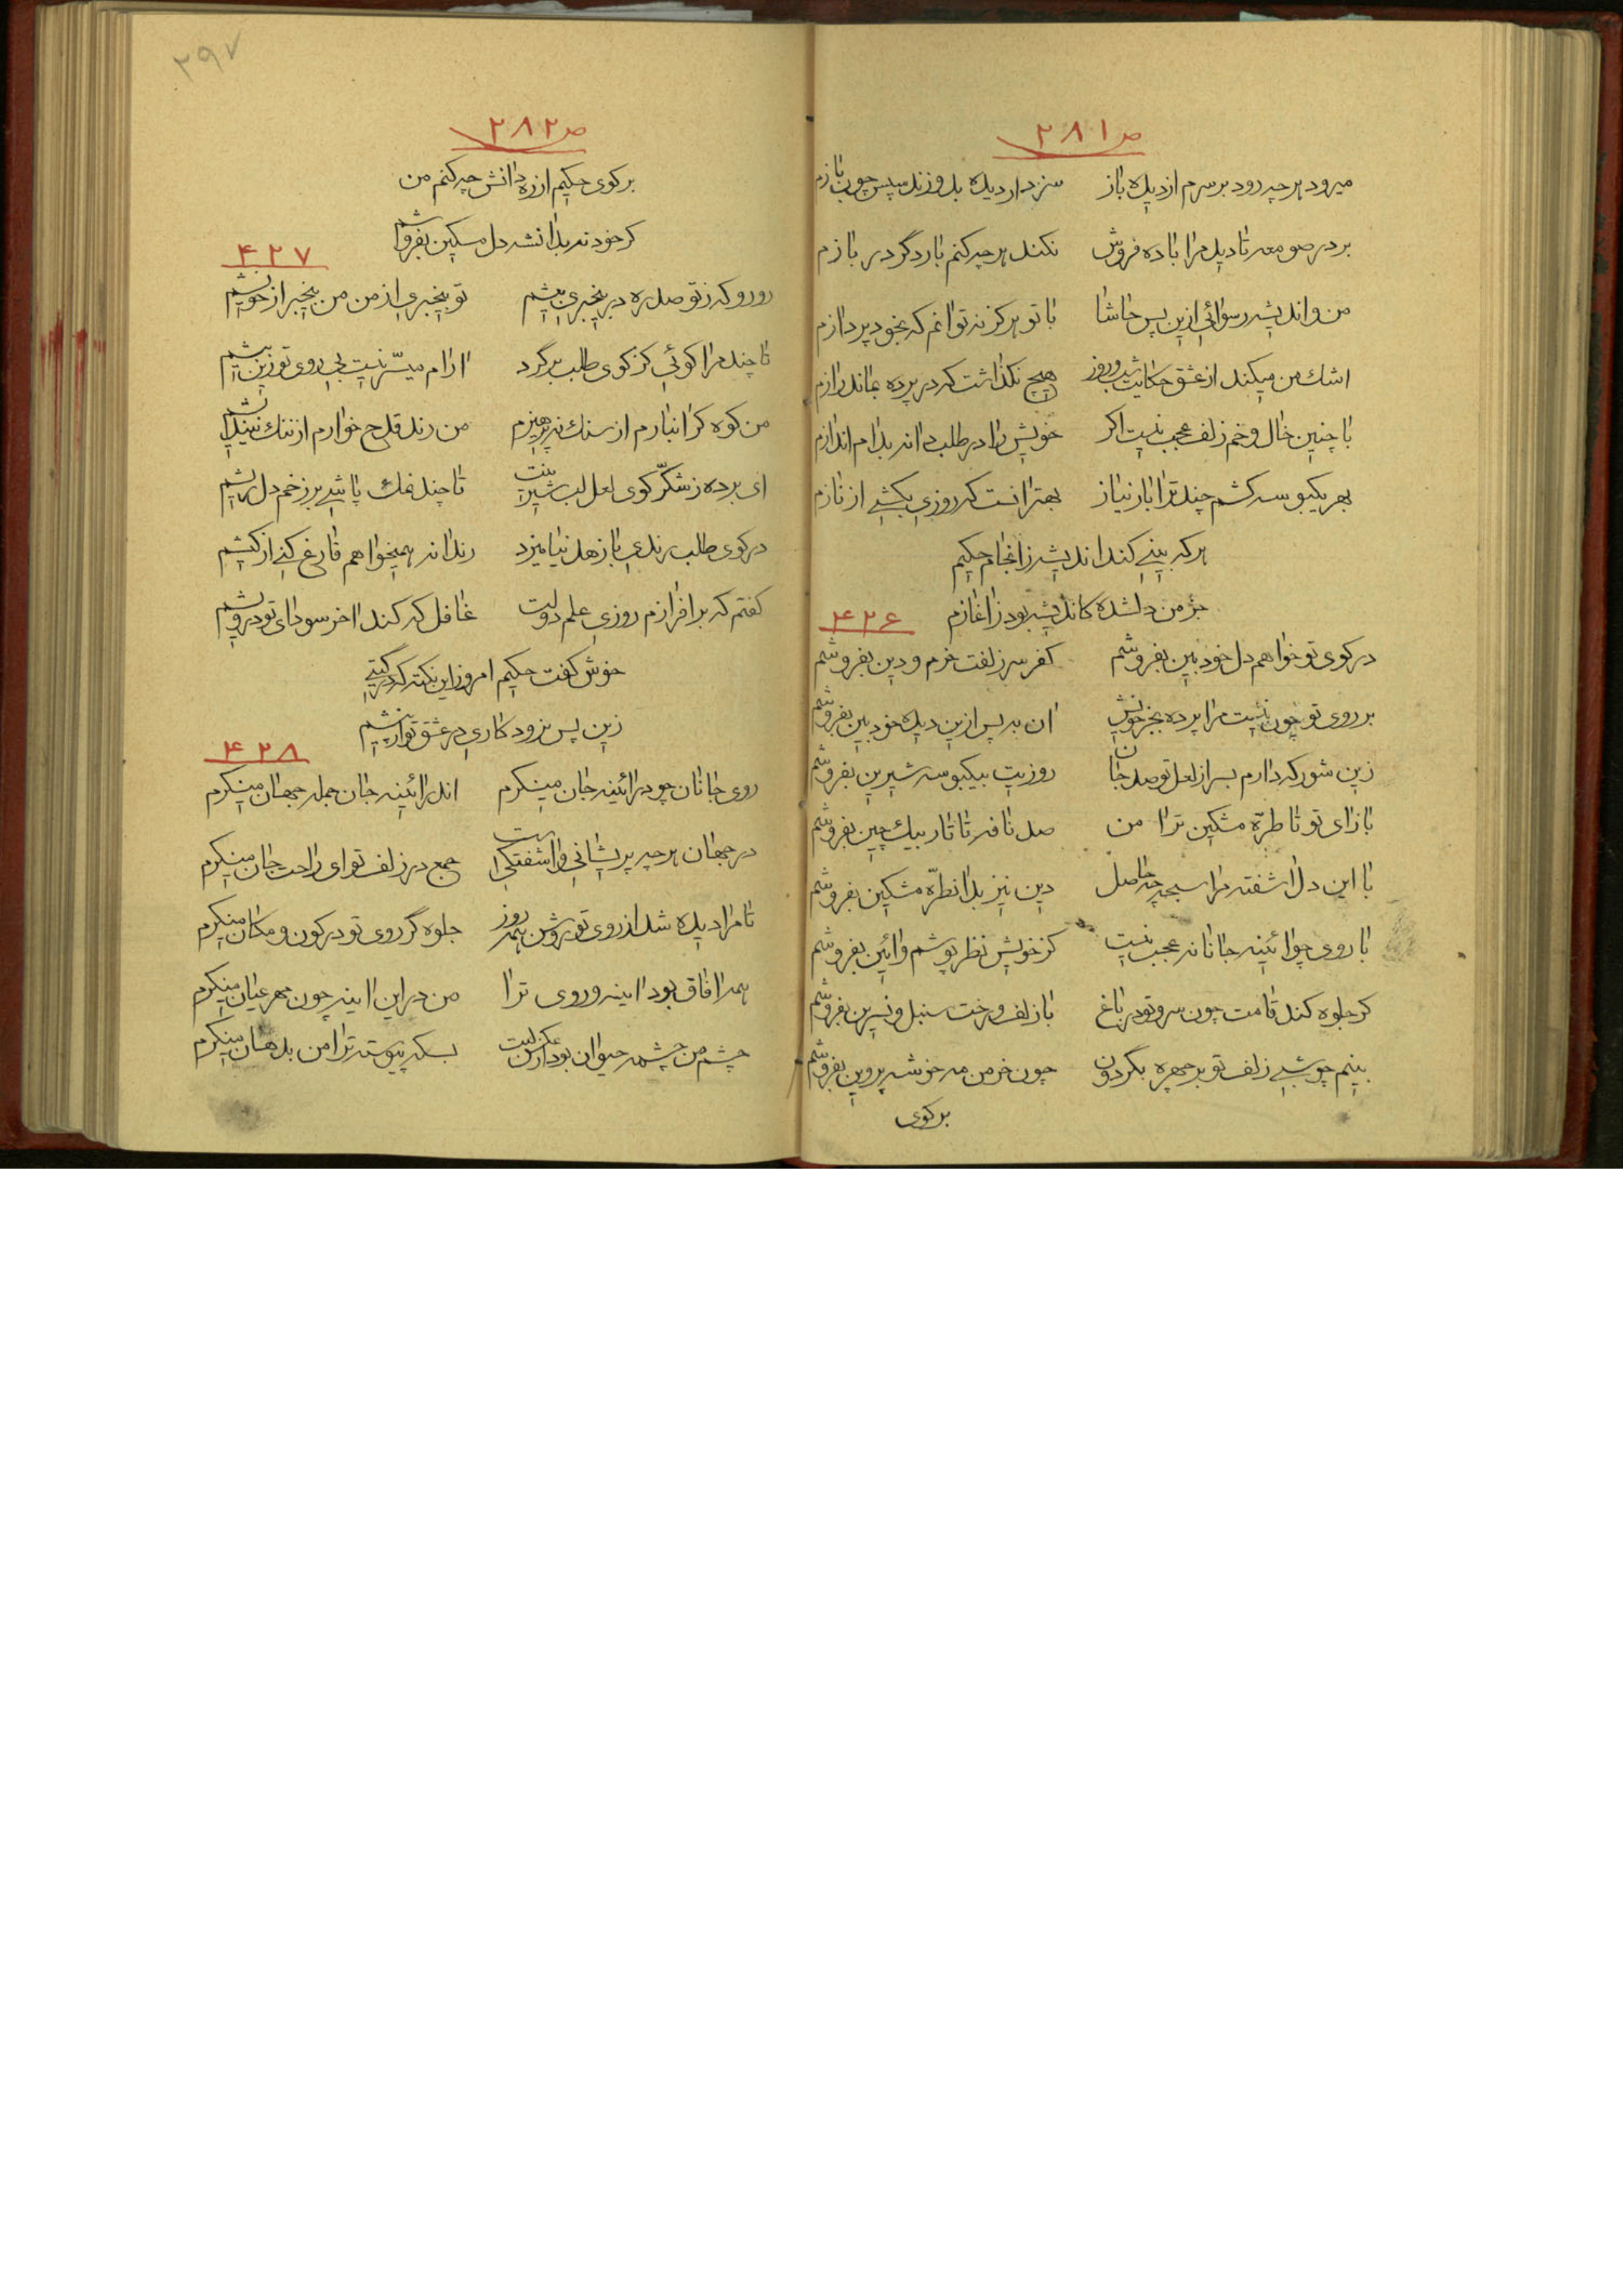 ص ۲۸۱
میرود هر چه رود بر سرم از دیده باز سزد ار دیده بدوزند سپس چون بازم
بر در صومعه تا دید مرا باده فروش نکند هر چه کنم بار دگر در بازم
من و اندیشه رسوائی ازین پس حاشا با تو هرگز نه توانم که بخود پردازم
اشك من میکند از عشق حکایت شب و روز هیچ نگذاشت که در پرده بماند رازم
با چنین خال و خم زلف عجب نیست اکر خویش را در طلب دانه بدام اندازم
بهر یکبوسه کشم چند ترا بار نیاز بهتر انست که روزی بکشی از نازم
هر که بینی کند اندیشه ز انجام حکیم
جز من دلشده کاندیشه بود ز اغازم
۴۲۶
در کوی تو خواهم دل خود بین بفروشم کفر سر زلفت خرم و دین بفروشم
بر روی تو چون نیست مرا پرده بجز خویش ان به پس ازین دیده خود بین بفروشم
زین شور که دارم بسر از لعل تو صد جان روزیت بیکبوسه شیرین بفروشم
باز ای تو تا طرّه مشکین ترا من صد نافه تاتار بیك چین بفروشم
با این دل اشفته مرا سبحه چه حاصل دین نیز بدان طرّه مشکین بفروشم
با روی چو ائینه جانانه عجب نیست کز خویش نظر پوشم و ائین بفروشم
کر جلوه کند قامت چون سرو تو در باغ با زلف و رخت سنبل و نسرین بفروشم
بینم چو شبی زلف تو بر چهره بگردون چون خرمن مه خوشه پروین بفروشم
بر کوی
۳۹۷
ص ۲۸۲
بر کوی حکیم از ره دانش چه کنم من
کر خود نه بدانشه دل مسکین بفروشم
۴۲۷
رو رو که ز تو صد ره در بیخبری بیشم تو بیخبری از من من بیخبر از خویشم
تا چند مرا کوئی کز کوی طلب برگرد ارام میسّر نیست بی روی تو زین بیشم
من کوه کرانبارم از سنك نپرهیزم من رند قدح خوارم از ننك نیندیشم
ای برده ز شکّر کوی لعل لب شیرینت تا چند نمك پاشی بر زخم دل ریشم
در کوی طلب رندی با زهد نیامیزد رندانه همیخواهم فارغ کنی از کیشم
کفتم که بر افرازم روزی علم دولت غافل که کند اخر سودای تو درویشم
خوش کفت حکیم امروز این نکته که در کیتی
زین پس نرود کاری در عشق تو از پیشم
۴۲۸
روی جانان چو در ائینه جان مینکرم اندر ائینه جان جمله جهان مینکرم
در جهان هر چه پریشانی و اشفتکی است جمع در زلف تو ای راحت جان مینکرم
تا مرا دیده شد از روی تو روشن همه روز جلوه گر روی تو در کون و مکان مینکرم
همه افاق بود اینه و روی ترا من در این اینه چون مهر عیان مینکرم
چشم من چشمه حیوان بود از عکس لبت بسکه پیوسته ترا من بدهان مینکرم